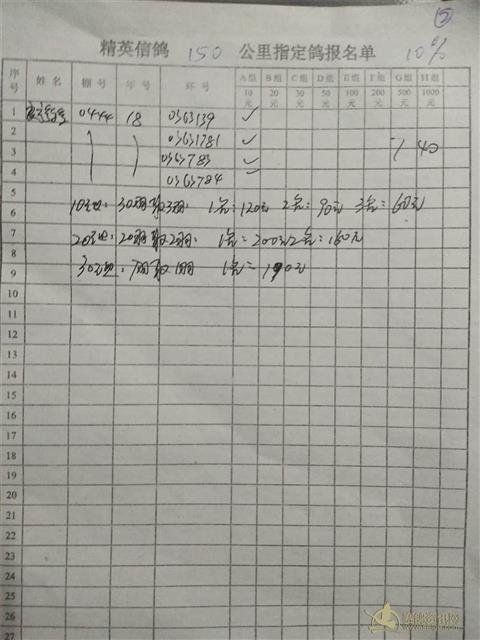 ⑤
精英信鸽 150 公里指定鸽报名单 10%
序号 姓名 棚号 年号 环号 A组 B组 C组 D组 E组 F组 G组 H组
10元 20元 30元 50元 100元 200元 500元 1000元
1 0444 18 0363139 ✓
2 0363781 ✓
3 0363783 ✓ 40
4 0363784 ✓
5
6 10元组：30羽取3羽： 1名：120元 2名：90元 3名：60元
7 20元组：20羽取2羽： 1名：200元 2名：160元
8
9 30元组：7羽取1羽 1名：190元
10
11
12
13
14
15
16
17
18
19
20
21
22
23
24
25
26
27